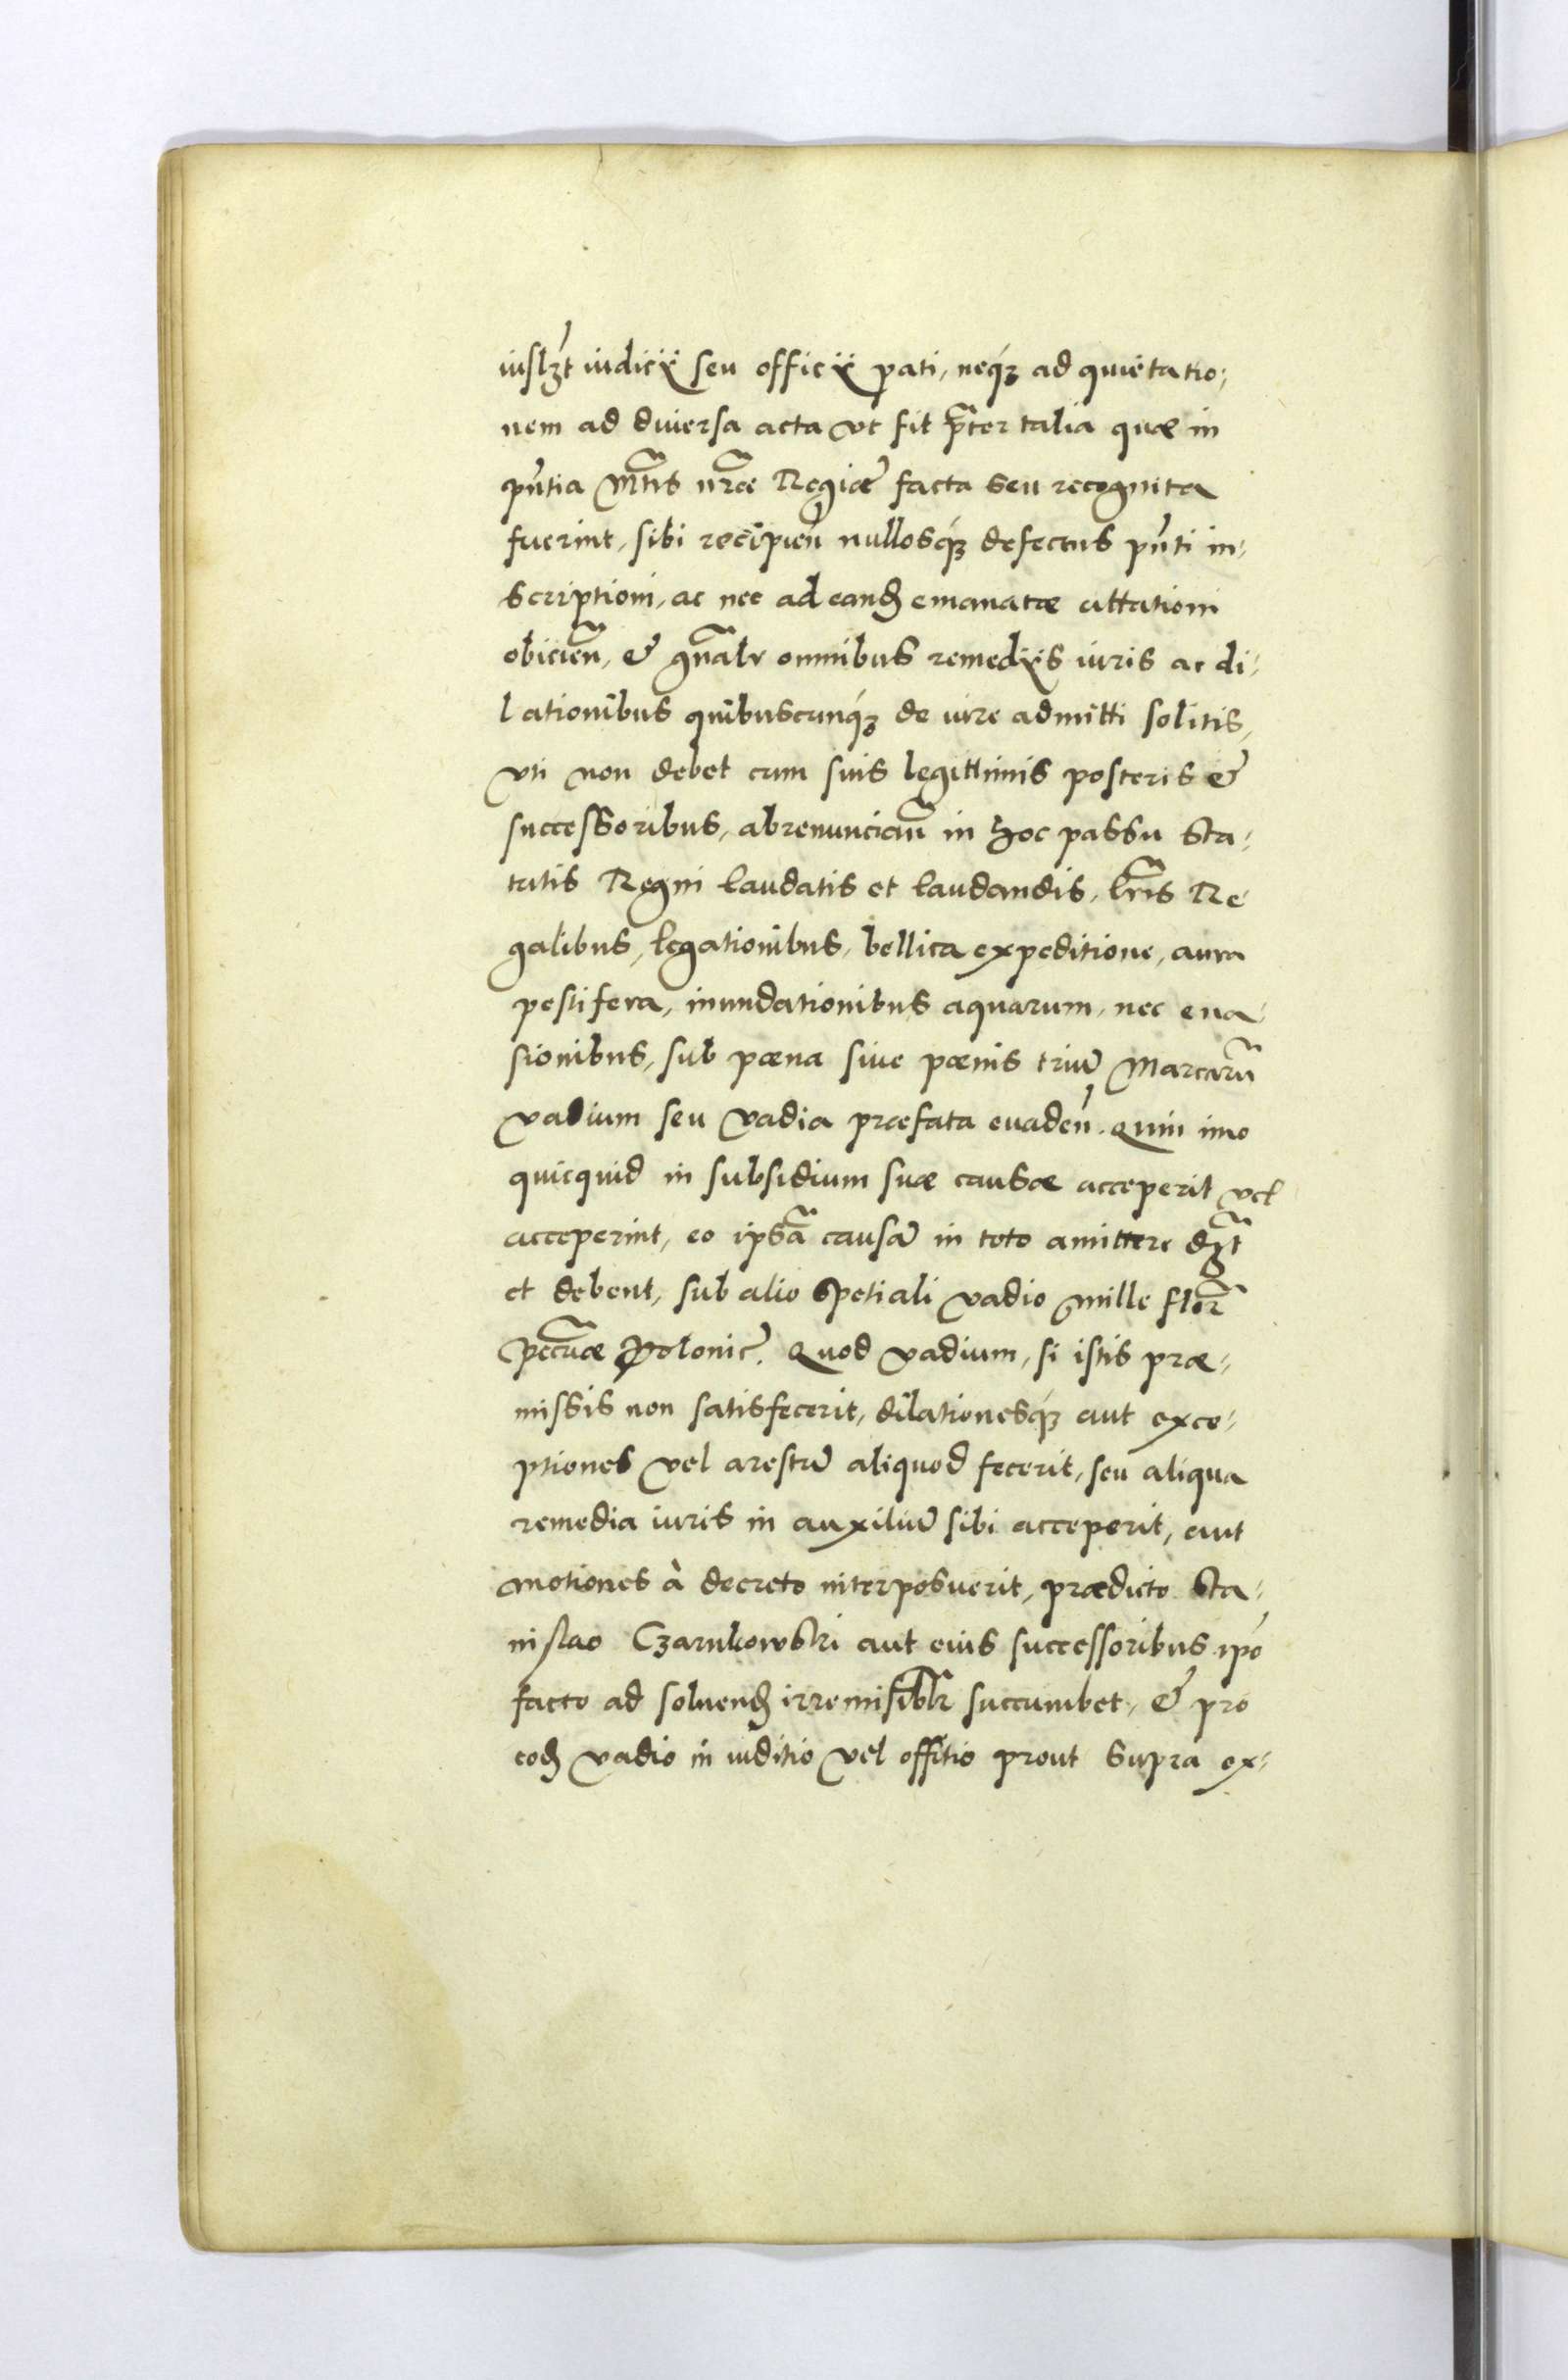 iuslꝫt iudicÿ seu officÿ pati, neqꝫ ad quietatio-
nem ad diuersa acta vt fit p̃ter talia quæ in
pñtia Mtĩs nr̃æ Regiæ facta seu recognita
fuerint, sibi recipieñ nullosqꝫ defectus pñti in-
scriptioni, ac nec ad eandꝫ emanatæ cittationi
obicieñ, & gñalr omnibus remedÿs iuris ac di-
lationibus quibuscunqꝫ de iure admitti solitis,
vti non debet cum suis legittimis posteris &
successoribus, abrenunciañ in hoc passu sta-
tutis Regni laudatis et laudandis, lr̃is Re-
galibus, legationibus, bellica expeditione, aura
pestifera, inundationibus aquarum, nec eua-
sionibus, sub pæna siue pænis triũ Marcarũ
vadium seu vadia præfata euadeñ. Quin imo
quicquid in subsidium suæ causæ acceperit vel
acceperint, eo ipsã causã in toto amittere dꝫt
et debent, sub alio spetiali vadio mille flor̃
pecũæ Polonic̃. Quod vadium, si istis præ-
missis non satisfecerit, dilationesqꝫ aut exce-
ptiones vel arestũ aliquod fecerit, seu aliqua
remedia iuris in auxiliũ sibi acceperit, aut
motiones à decreto interposuerit, prædicto Sta-
nislao Czarnkowski aut eius successoribus ipõ
facto ad soluendꝫ irremisiblr̃ succumbet, & pro
eodꝫ vadio in iuditio vel offitio prout supra ex-